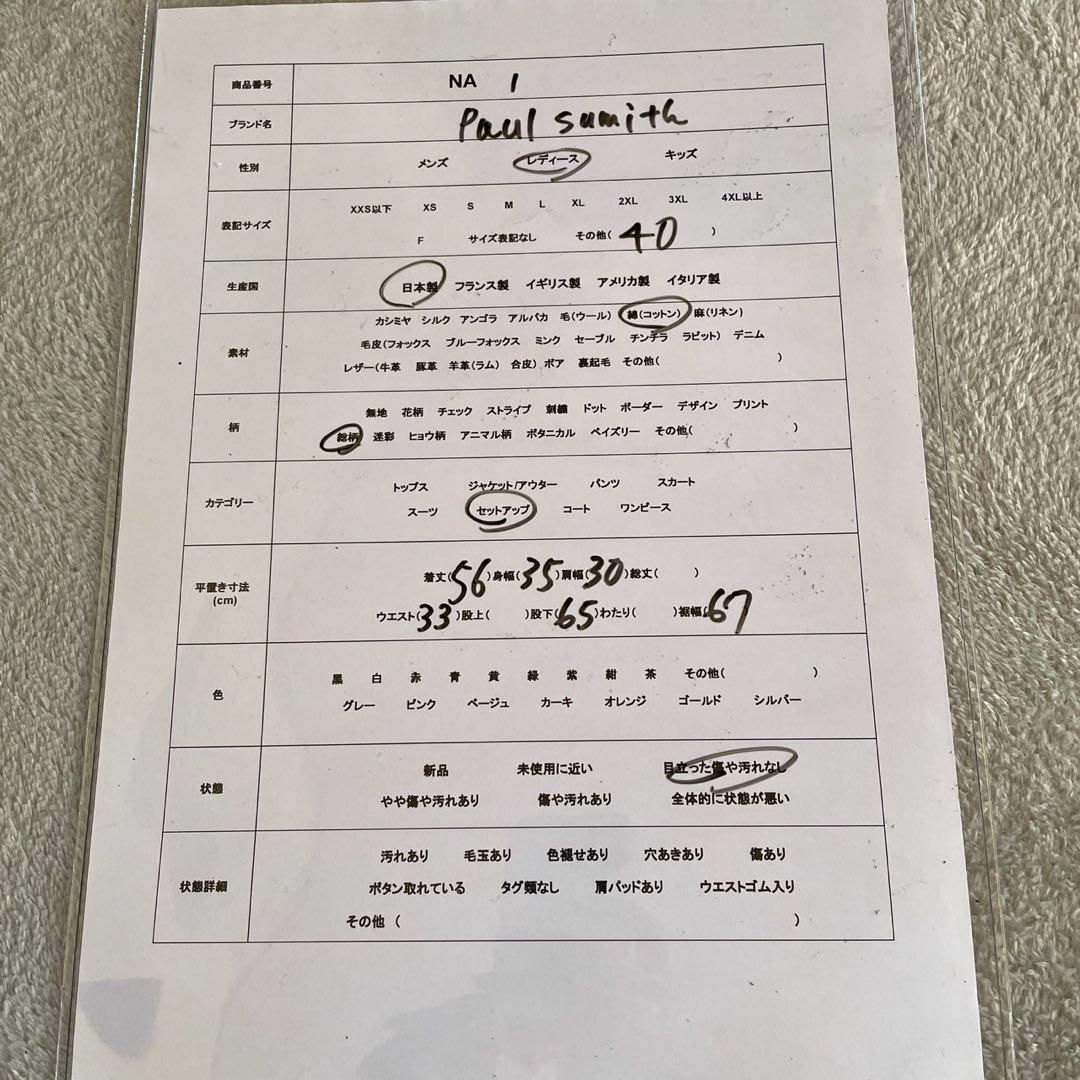 商品番号 NA 1
ブランド名 Paul sumith
性別 メンズ レディース キッズ
表記サイズ XXS以下 XS S M L XL 2XL 3XL 4XL以上
F サイズ表記なし その他( 40 )
生産国 日本製 フランス製 イギリス製 アメリカ製 イタリア製
素材 カシミヤ シルク アンゴラ アルパカ 毛(ウール) 綿(コットン) 麻(リネン)
毛皮(フォックス ブルーフォックス ミンク セーブル チンチラ ラビット) デニム
レザー(牛革 豚革 羊革(ラム) 合皮) ボア 裏起毛 その他( )
柄 無地 花柄 チェック ストライプ 刺繍 ドット ボーダー デザイン プリント
総柄 迷彩 ヒョウ柄 アニマル柄 ボタニカル ペイズリー その他( )
カテゴリー トップス ジャケット/アウター パンツ スカート
スーツ セットアップ コート ワンピース
平置き寸法 (cm) 着丈( 56 )身幅( 35 )肩幅( 30 )総丈( )
ウエスト( 33 )股上( )股下( 65 )わたり( )裾幅( 67
色 黒 白 赤 青 黄 緑 紫 紺 茶 その他( )
グレー ピンク ベージュ カーキ オレンジ ゴールド シルバー
状態 新品 未使用に近い 目立った傷や汚れなし
やや傷や汚れあり 傷や汚れあり 全体的に状態が悪い
状態詳細 汚れあり 毛玉あり 色褪せあり 穴あきあり 傷あり
ボタン取れている タグ類なし 肩パッドあり ウエストゴム入り
その他 ( )